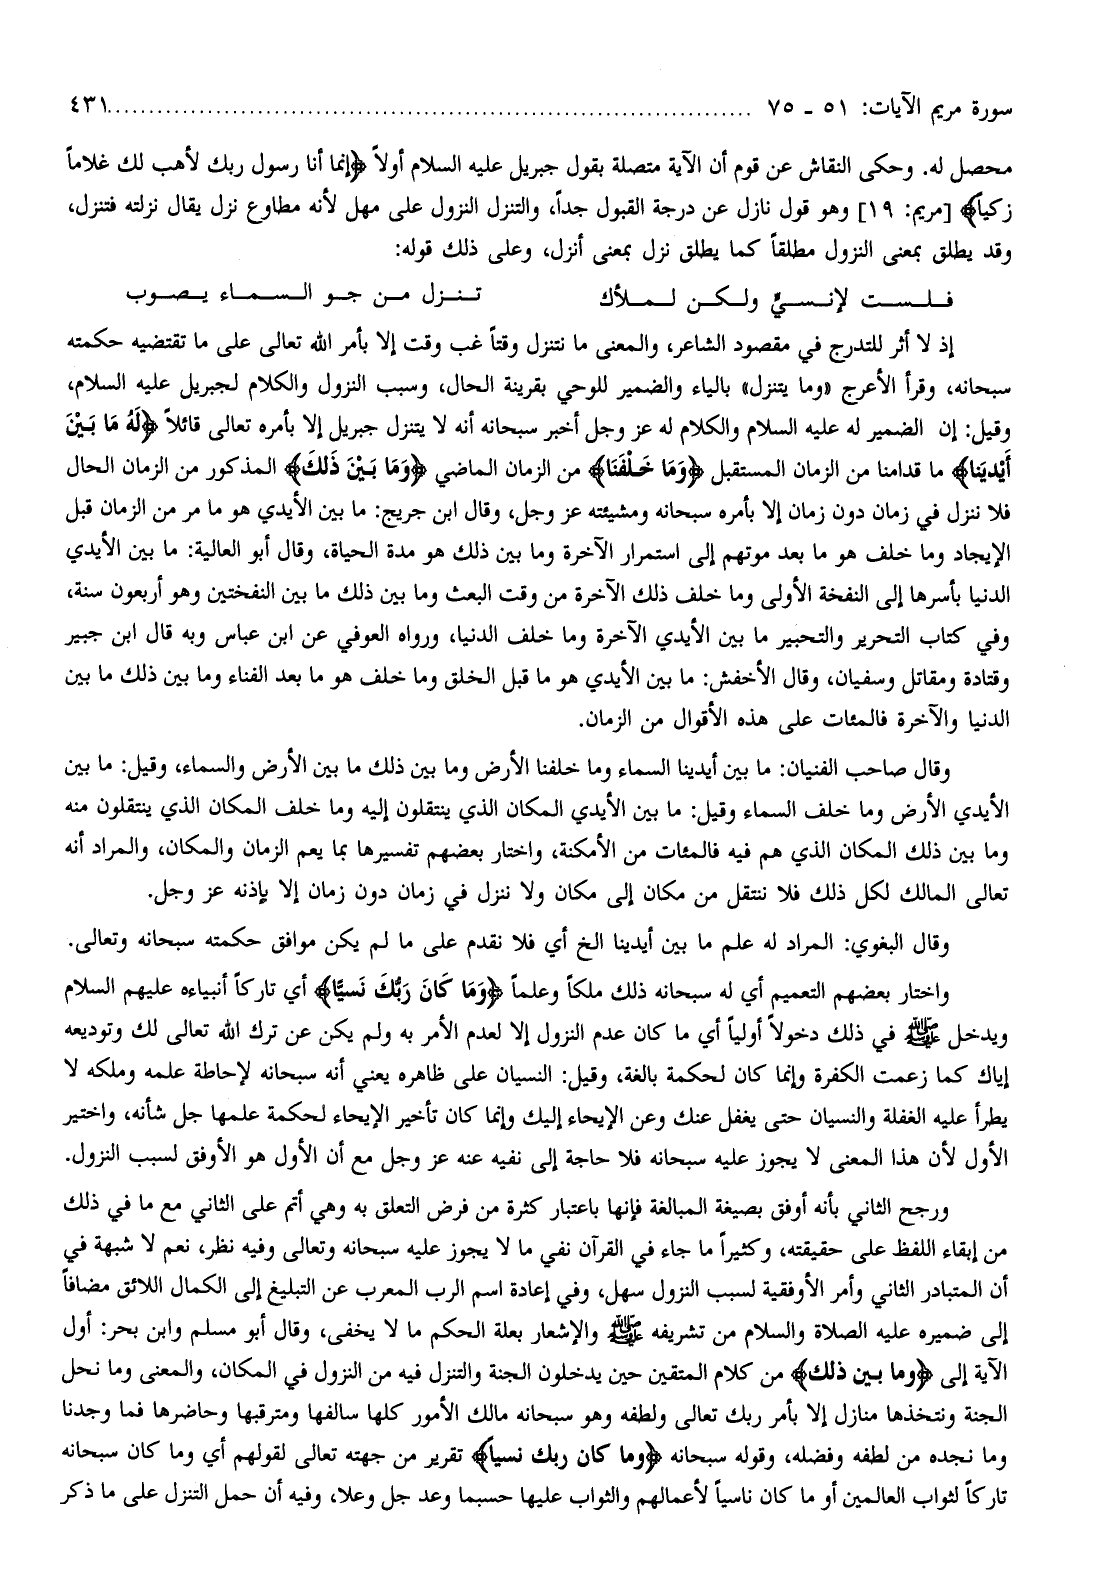 سورة مريم الآيات: ٥١ ـ ٧٥ ................................................................................ ٤٣١
محصل له. وحكى النقاش عن قوم أن الآية متصلة بقول جبريل عليه السلام أولاً ﴿إنما أنا رسول ربك لأهب لك غلاماً
زكياً﴾ [مريم: ١٩] وهو قول نازل عن درجة القبول جداً، والتنزل النزول على مهل لأنه مطاوع نزل يقال نزلته فتنزل،
وقد يطلق بمعنى النزول مطلقاً كما يطلق نزل بمعنى أنزل، وعلى ذلك قوله:
فلست لإنسيٍّ ولكن لملأك تنزل من جو السماء يصوب
إذ لا أثر للتدرج في مقصود الشاعر، والمعنى ما نتنزل وقتاً غب وقت إلا بأمر الله تعالى على ما تقتضيه حكمته
سبحانه، وقرأ الأعرج «وما يتنزل» بالياء والضمير للوحي بقرينة الحال، وسبب النزول والكلام لجبريل عليه السلام،
وقيل: إن الضمير له عليه السلام والكلام له عز وجل أخبر سبحانه أنه لا يتنزل جبريل إلا بأمره تعالى قائلاً ﴿لَهُ مَا بَيْنَ
أَيْدِينَا﴾ ما قدامنا من الزمان المستقبل ﴿وَمَا خَلْفَنَا﴾ من الزمان الماضي ﴿وَمَا بَيْنَ ذَلكَ﴾ المذكور من الزمان الحال
فلا ننزل في زمان دون زمان إلا بأمره سبحانه ومشيئته عز وجل، وقال ابن جريج: ما بين الأيدي هو ما مر من الزمان قبل
الإيجاد وما خلف هو ما بعد موتهم إلى استمرار الآخرة وما بين ذلك هو مدة الحياة، وقال أبو العالية: ما بين الأيدي
الدنيا بأسرها إلى النفخة الأولى وما خلف ذلك الآخرة من وقت البعث وما بين ذلك ما بين النفختين وهو أربعون سنة،
وفي كتاب التحرير والتحبير ما بين الأيدي الآخرة وما خلف الدنيا، ورواه العوفي عن ابن عباس وبه قال ابن جبير
وقتادة ومقاتل وسفيان، وقال الأخفش: ما بين الأيدي هو ما قبل الخلق وما خلف هو ما بعد الفناء وما بين ذلك ما بين
الدنيا والآخرة فالمئات على هذه الأقوال من الزمان.
وقال صاحب الفنيان: ما بين أيدينا السماء وما خلفنا الأرض وما بين ذلك ما بين الأرض والسماء، وقيل: ما بين
الأيدي الأرض وما خلف السماء وقيل: ما بين الأيدي المكان الذي ينتقلون إليه وما خلف المكان الذي ينتقلون منه
وما بين ذلك المكان الذي هم فيه فالمئات من الأمكنة، واختار بعضهم تفسيرها بما يعم الزمان والمكان، والمراد أنه
تعالى المالك لكل ذلك فلا ننتقل من مكان إلى مكان ولا ننزل في زمان دون زمان إلا بإذنه عز وجل.
وقال البغوي: المراد له علم ما بين أيدينا الخ أي فلا نقدم على ما لم يكن موافق حكمته سبحانه وتعالى.
واختار بعضهم التعميم أي له سبحانه ذلك ملكاً وعلماً ﴿وَمَا كَانَ رَبُّكَ نَسيًّا﴾ أي تاركاً أنبياءه عليهم السلام
ويدخل ﷺ في ذلك دخولاً أولياً أي ما كان عدم النزول إلا لعدم الأمر به ولم يكن عن ترك الله تعالى لك وتوديعه
إياك كما زعمت الكفرة وإنما كان لحكمة بالغة، وقيل: النسيان على ظاهره يعني أنه سبحانه لإحاطة علمه وملكه لا
يطرأ عليه الغفلة والنسيان حتى يغفل عنك وعن الإيحاء إليك وإنما كان تأخير الإيحاء لحكمة علمها جل شأنه، واختير
الأول لأن هذا المعنى لا يجوز عليه سبحانه فلا حاجة إلى نفيه عنه عز وجل مع أن الأول هو الأوفق لسبب النزول.
ورجح الثاني بأنه أوفق بصيغة المبالغة فإنها باعتبار كثرة من فرض التعلق به وهي أتم على الثاني مع ما في ذلك
من إبقاء اللفظ على حقيقته، وكثيراً ما جاء في القرآن نفي ما لا يجوز عليه سبحانه وتعالى وفيه نظر، نعم لا شبهة في
أن المتبادر الثاني وأمر الأوفقية لسبب النزول سهل، وفي إعادة اسم الرب المعرب عن التبليغ إلى الكمال اللائق مضافاً
إلى ضميره عليه الصلاة والسلام من تشريفه ﷺ والإشعار بعلة الحكم ما لا يخفى، وقال أبو مسلم وابن بحر: أول
الآية إلى ﴿وما بين ذلك﴾ من كلام المتقين حين يدخلون الجنة والتنزل فيه من النزول في المكان، والمعنى وما نحل
الجنة ونتخذها منازل إلا بأمر ربك تعالى ولطفه وهو سبحانه مالك الأمور كلها سالفها ومترقبها وحاضرها فما وجدنا
وما نجده من لطفه وفضله، وقوله سبحانه ﴿وما كان ربك نسياً﴾ تقرير من جهته تعالى لقولهم أي وما كان سبحانه
تاركاً لثواب العالمين أو ما كان ناسياً لأعمالهم والثواب عليها حسبما وعد جل وعلا، وفيه أن حمل التنزل على ما ذكر